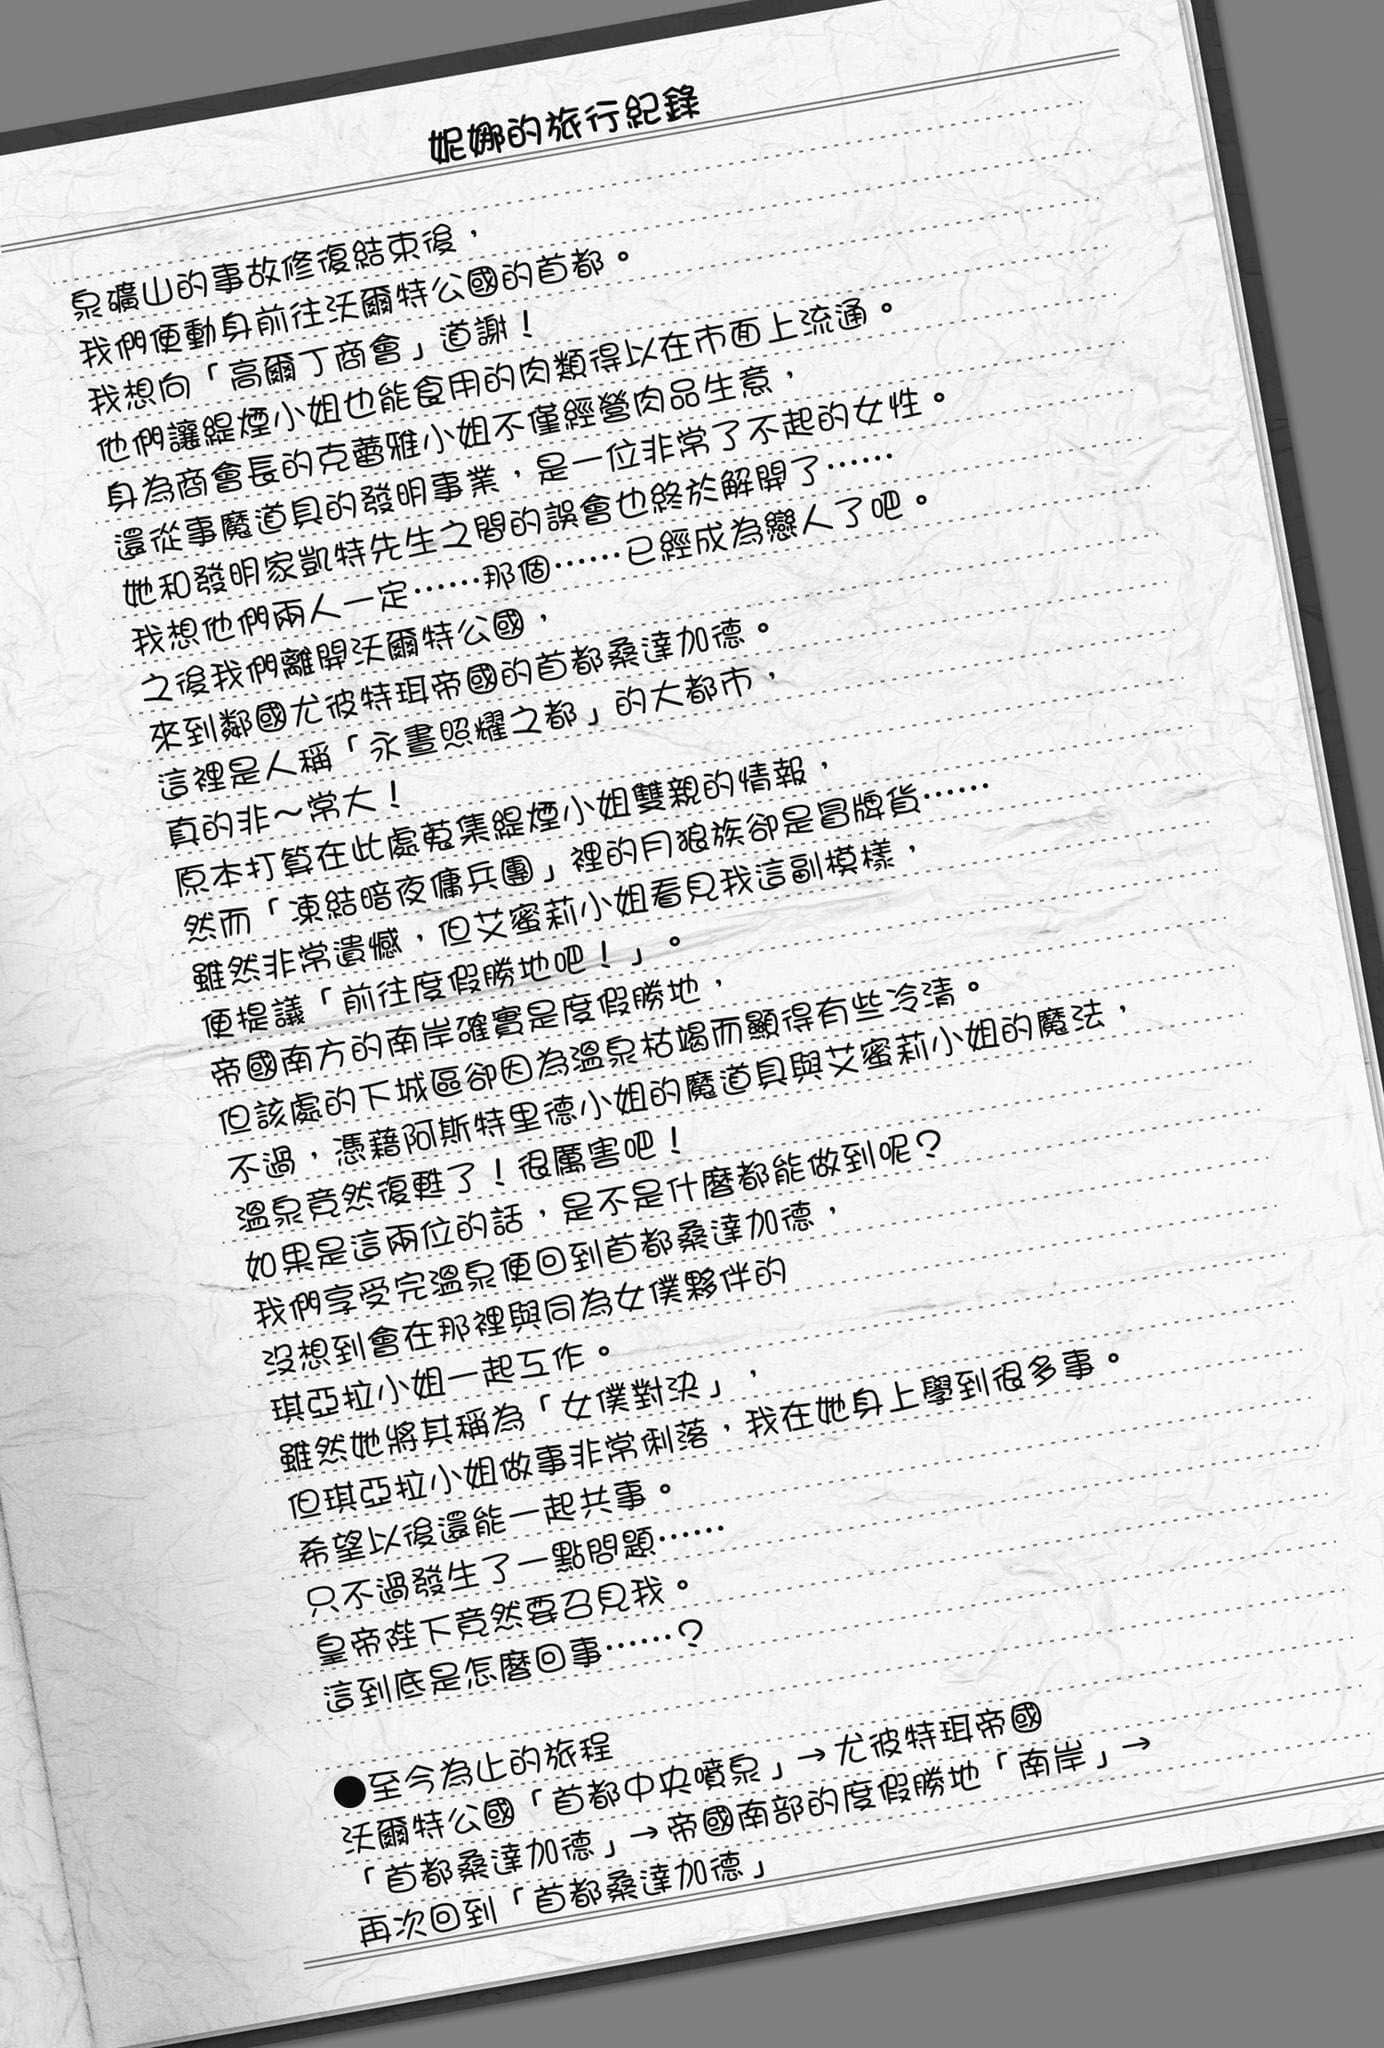 妮娜的旅行紀錄
泉礦山的事故修復結束後，
我們便動身前往沃爾特公國的首都。
我想向「高爾丁商會」道謝！
他們讓緹煙小姐也能食用的肉類得以在市面上流通。
身為商會長的克蕾雅小姐不僅經營肉品生意，
還從事魔道具的發明事業，是一位非常了不起的女性。
她和發明家凱特先生之間的誤會也終於解開了……
我想他們兩人一定……那個……已經成為戀人了吧。
之後我們離開沃爾特公國，
來到鄰國尤彼特珥帝國的首都桑達加德。
這裡是人稱「永晝照耀之都」的大都市，
真的非～常大！
原本打算在此處蒐集緹煙小姐雙親的情報，
然而「凍結暗夜傭兵團」裡的月狼族卻是冒牌貨……
雖然非常遺憾，但艾蜜莉小姐看見我這副模樣，
便提議「前往度假勝地吧！」。
帝國南方的南岸確實是度假勝地，
但該處的下城區卻因為溫泉枯竭而顯得有些冷清。
不過，憑藉阿斯特里德小姐的魔道具與艾蜜莉小姐的魔法，
溫泉竟然復甦了！很厲害吧！
如果是這兩位的話，是不是什麼都能做到呢？
我們享受完溫泉便回到首都桑達加德，
沒想到會在那裡與同為女僕夥伴的
琪亞拉小姐一起工作。
雖然她將其稱為「女僕對決」，
但琪亞拉小姐做事非常俐落，我在她身上學到很多事。
希望以後還能一起共事。
只不過發生了一點問題……
皇帝陛下竟然要召見我。
這到底是怎麼回事……？
●至今為止的旅程
沃爾特公國「首都中央噴泉」→尤彼特珥帝國
「首都桑達加德」→帝國南部的度假勝地「南岸」→
再次回到「首都桑達加德」